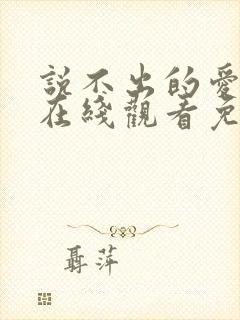 説不出的愛
在綫觀看免
聶萍